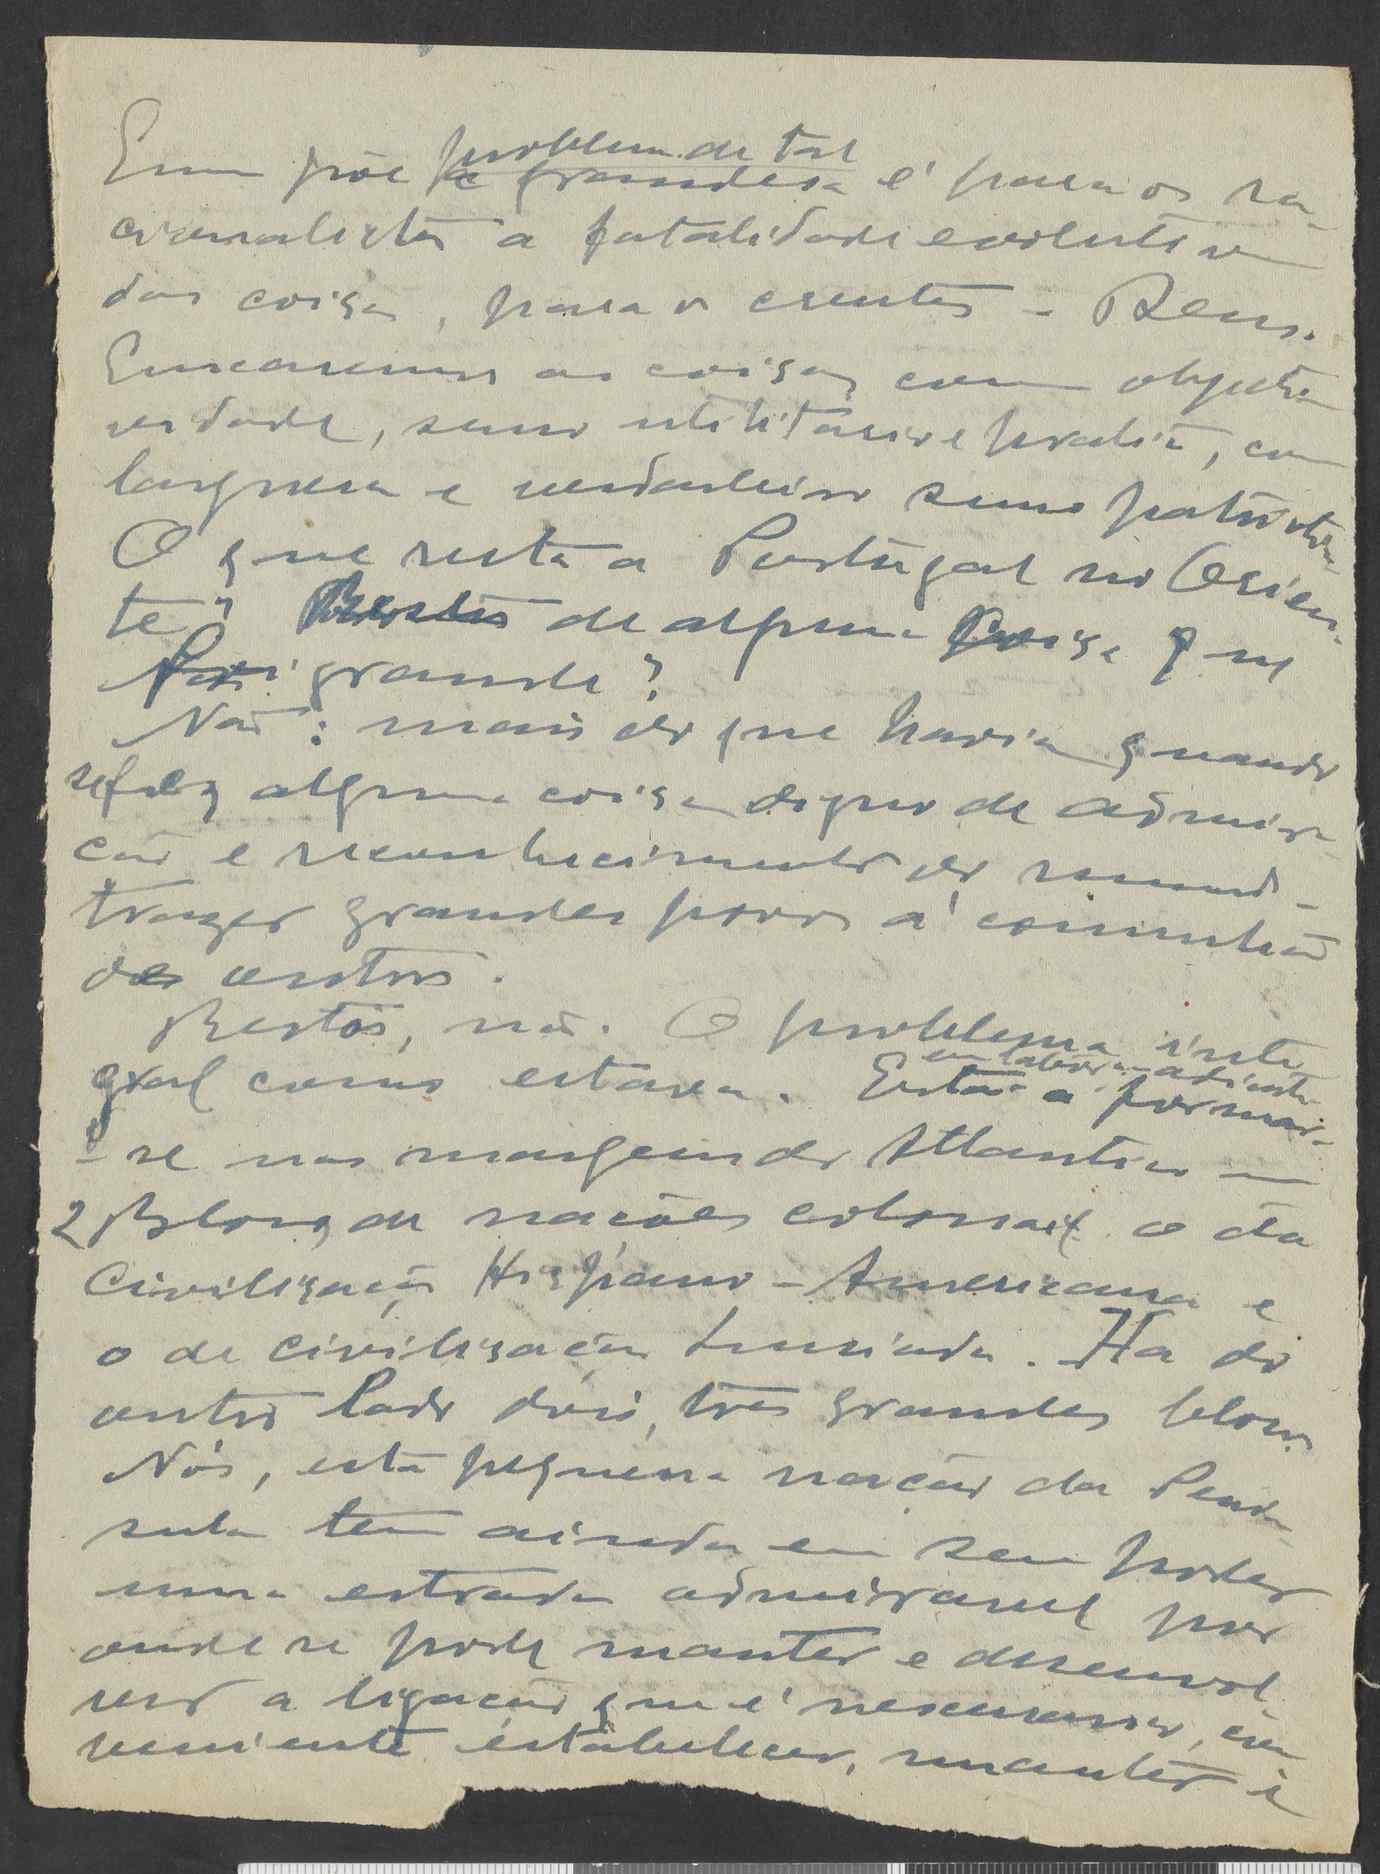 Quem põe problema de tal
grandesa é para os ra-
cionalistas a fatalidade evolutiva
das coisas, para os crentes - Deus.
Encaremos as coisas com objecti-
vidade, senso utilitario e pratico, com
largueza e verdadeiro senso patriotico
O que resta a Portugal no Orien-
te? Restos de alguma coisa que
foi grande?
Não: mais do que havia quando
se fez alguma coisa digno de admira-
ção e reconhecimento do mundo -
trazer grandes povos á comunhão
dos outros.
Restos, não. O problema inte-
gral como estava. Está a formar-
-se nas margens do Atlantico
2 Blocos de nações colossais o da
Civilisação Hispano-Americana e
o de civilisação Lusiada. Ha do
outro lado dois, tres grandes blocos
Nós, esta pequena nação da Penin-
sula tem ainda em seu poder
uma estrada admiravel por
onde se pode manter e desenvol
ver a ligação que é necessario, con
veniente estabelecer, manter e